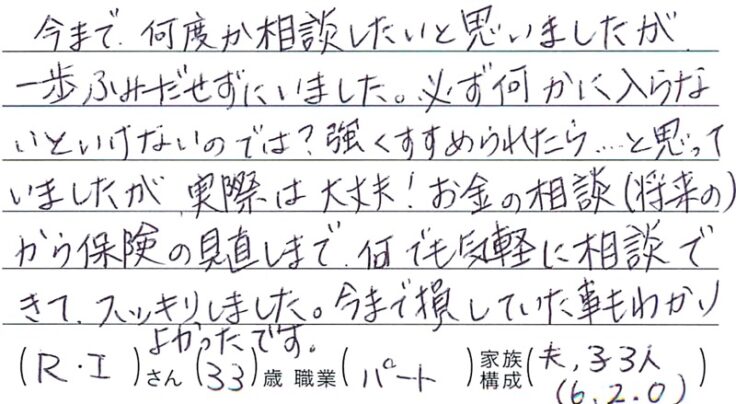 今まで、何度か相談したいと思いましたが、
一歩ふみだせずにいました。必ず何かに入らな
いといけないのでは？強くすすめられたら…と思って
いましたが、実際は大丈夫！お金の相談(将来の)
から保険の見直しまで、何でも気軽に相談で
きて、スッキリしました。今まで損していた事もわかり
よかったです。
(R・I)さん(33)歳 職業(パート)家族構成(夫,子3人(6,2,0))